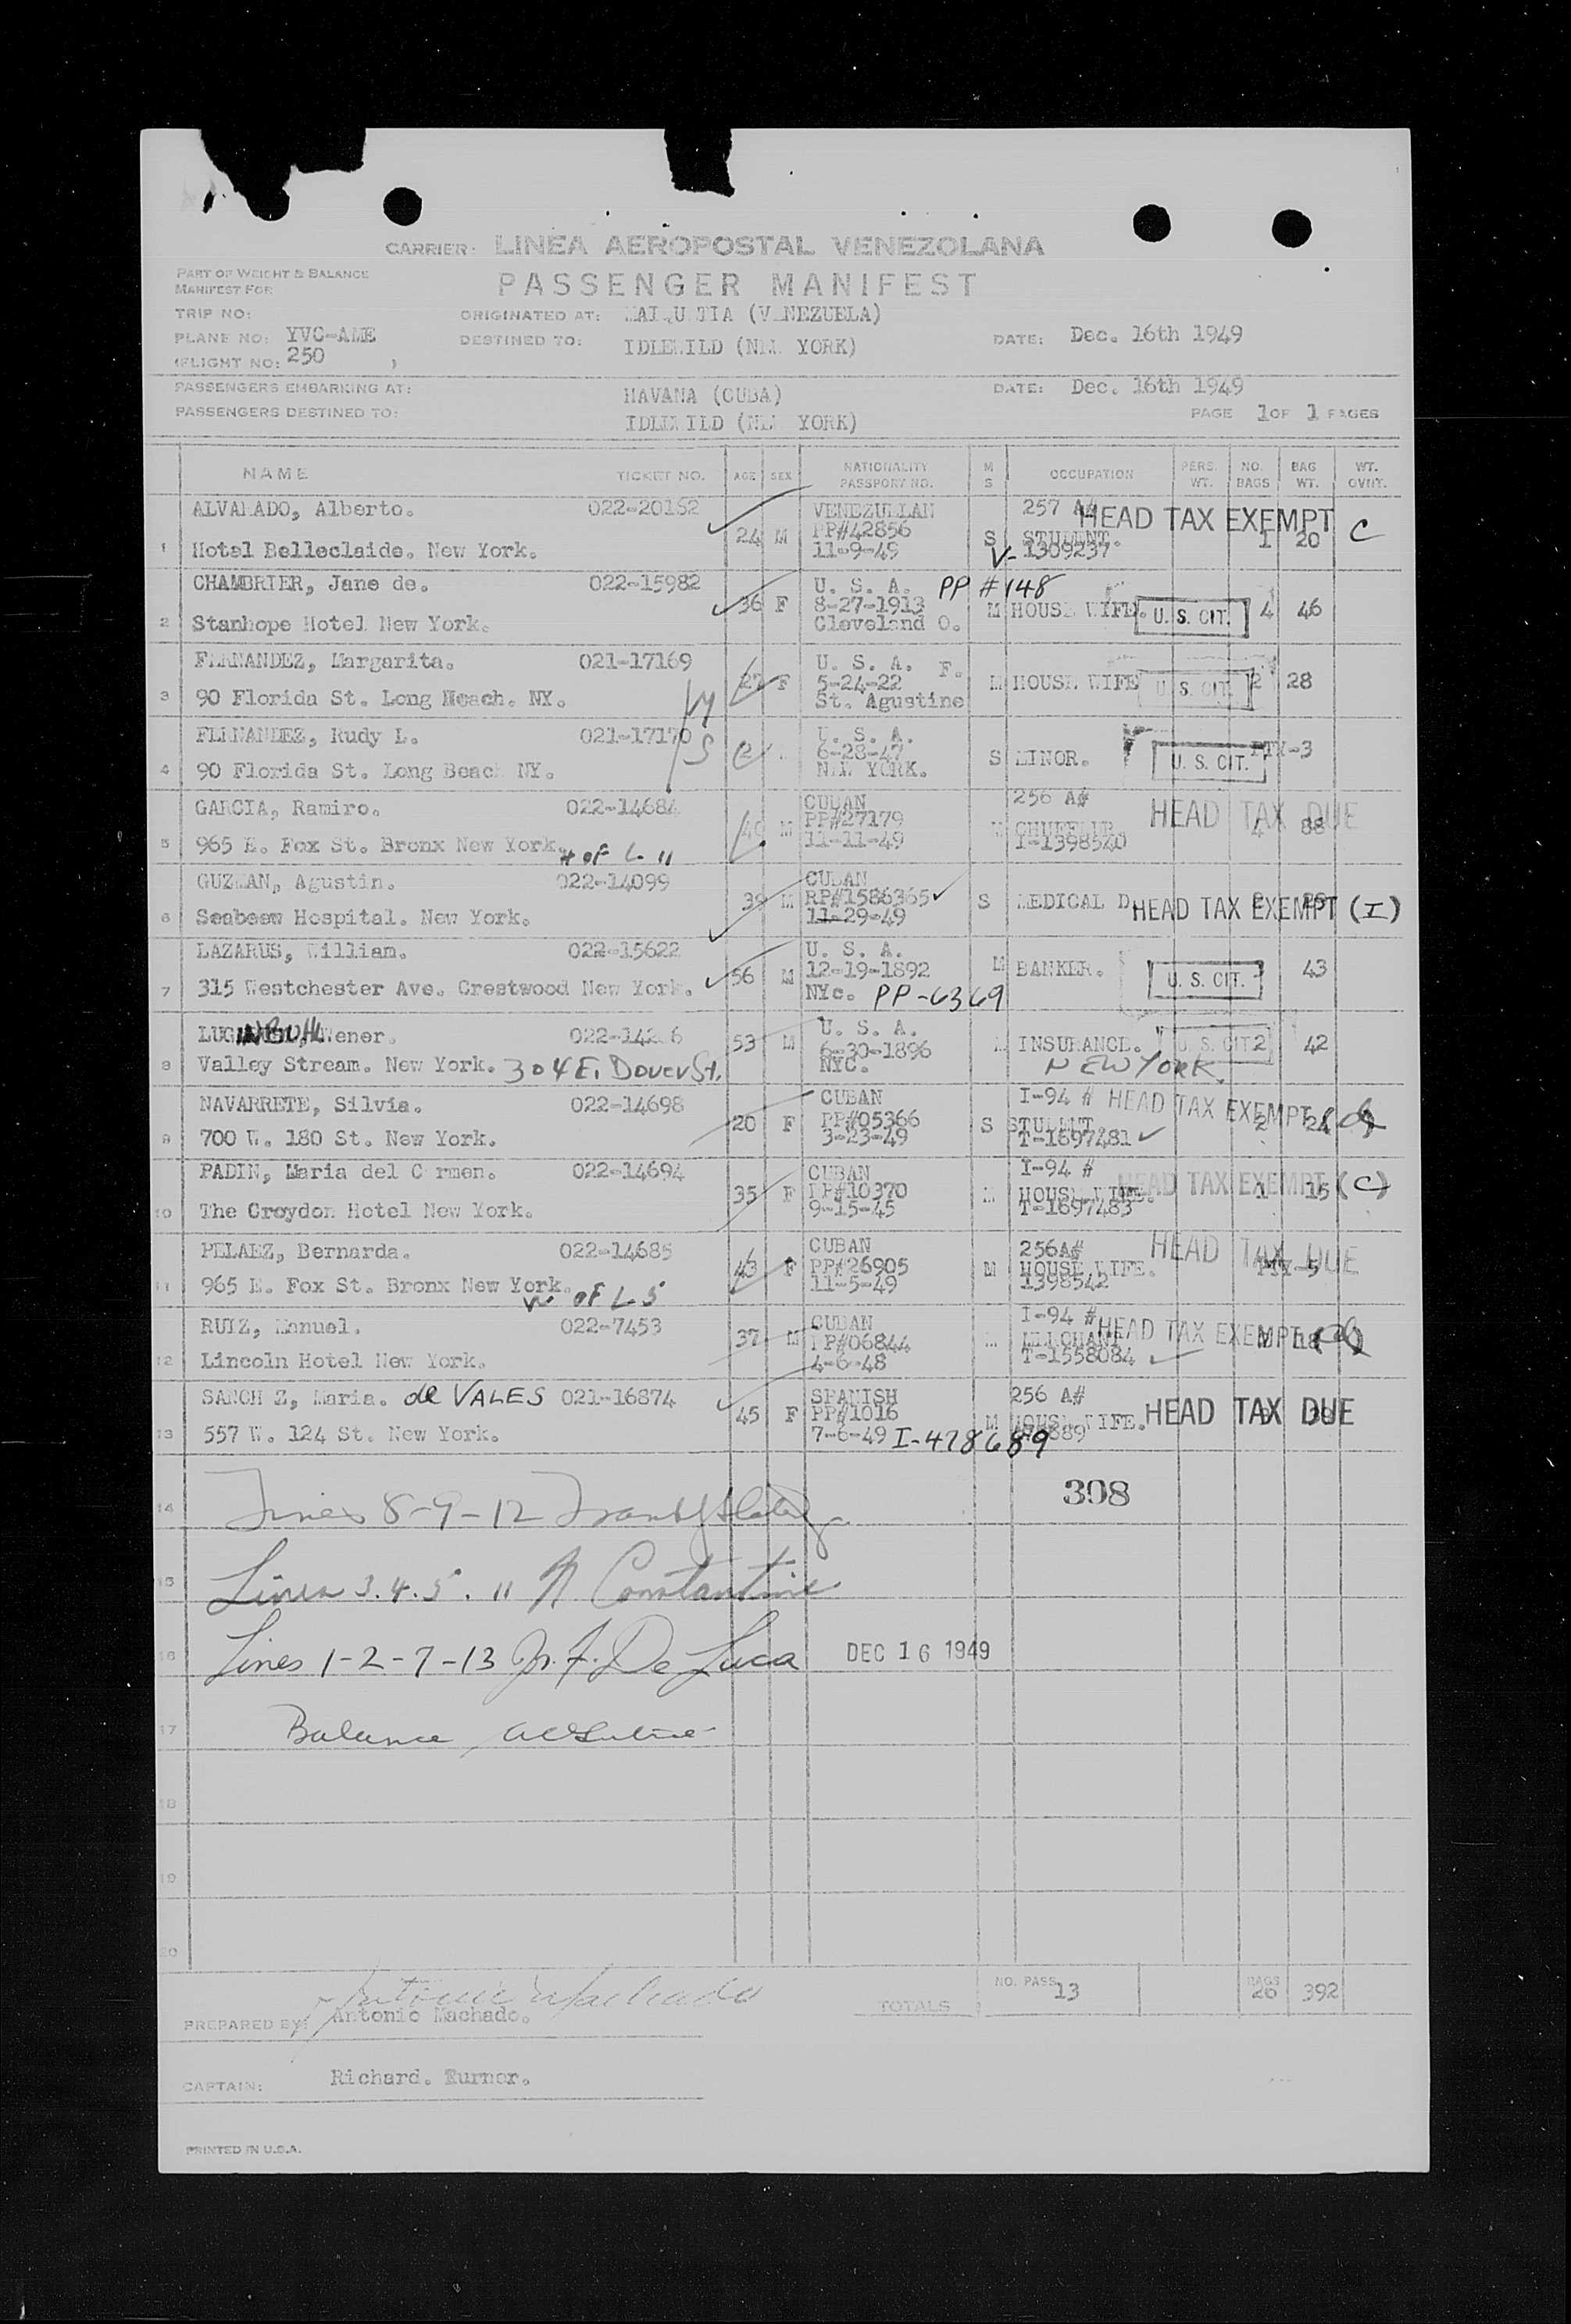 CARRIER: LINEA AEROPOSTAL VENEZOLANA
PART OF WEIGHT & BALANCE
MANIFEST FOR
PASSENGER MANIFEST
TRIP NO: ORIGINATED AT: (VENEZUELA)
PLANE NO: YVC-AME DESTINED TO: IDLEWILD (NEW YORK) DATE: Dec. 16th 1949
(FLIGHT NO: 250 )
PASSENGERS EMBARKING AT: HAVANA (CUBA) DATE: Dec. 16th 1949
PASSENGERS DESTINED TO: IDLEWILD (NEW YORK) PAGE 1 OF 1 PAGES
NAME TICKET NO. AGE SEX NATIONALITY PASSPORT NO. M S OCCUPATION PERS. WT. NO. BAGS BAG WT. WT. OVHT.
ALVARADO, Alberto. 022-20152 VENEZUELAN 257 A# HEAD TAX EXEMPT C
24 M PP#42856 S STUDENT. 1 20
1 Hotel Belleclaide. New York. 11-9-49 V-1309237
CHAMBRIER, Jane de. 022-15982 U. S. A. PP #148
36 F 8-27-1913 M HOUSE WIFE. U. S. CIT. 4 46
2 Stanhope Hotel New York. Cleveland O.
FERNANDEZ, Margarita. 021-17169 U. S. A. F.
27 F 5-24-22 M HOUSE WIFE U. S. CIT. 2 28
3 90 Florida St. Long Beach. NY. St. Agustine
FERNANDEZ, Rudy L. 021-17170 U. S. A.
2 6-28-47 S MINOR. U. S. CIT.
4 90 Florida St. Long Beach NY. NEW YORK.
GARCIA, Ramiro. 022-14684 CUBAN 256 A# HEAD TAX DUE
40 M PP#27179 4 88
5 965 E. Fox St. Bronx New York. H of L 11 11-11-49 I-1398540
GUZMAN, Agustin. 022-14099 CUBAN
39 M RP#1586365 S MEDICAL D. HEAD TAX EXEMPT (I)
6 Seabeew Hospital. New York. 11-29-49
LAZARUS, William. 022-15622 U. S. A.
56 M 12-19-1892 M BANKER. U. S. CIT. 43
7 315 Westchester Ave. Crestwood New York. NYc. PP-6369
U. S. A.
53 M 6-30-1896 INSURANCE. U. S. CIT 2 42
8 Valley Stream. New York. 304 E. Dover St. NYC. NEW YORK.
NAVARRETE, Silvia. 022-14698 CUBAN I-94 # HEAD TAX EXEMPT
20 F PP#05366 S STUDENT. 2 24
9 700 W. 180 St. New York. 3-23-49 T-1697481
PADIN, Maria del Carmen. 022-14694 CUBAN I-94 # HEAD TAX EXEMPT (C)
35 F PP#10370 M HOUSE WIFE. 1 15
10 The Croydon Hotel New York. 9-15-45 T-1697483
PELAEZ, Bernarda. 022-14685 CUBAN 256A# HEAD TAX DUE
43 F PP#26905 M HOUSE WIFE.
11 965 E. Fox St. Bronx New York. W of L 5 11-5-49 1398542
RUIZ, Manuel. 022-7453 CUBAN I-94 # HEAD TAX EXEMPT
37 M PP#06844 MERCHANT 18
12 Lincoln Hotel New York. 4-6-48 T-1558084
SANCHEZ, Maria. de VALES 021-16874 SPANISH 256 A# HEAD TAX DUE
45 F PP#1016 M HOUSE WIFE.
13 557 W. 124 St. New York. 7-6-49 I-478689
14 Lines 8-9-12 308
15 Lines 3.4.5. 11 N Constantine
16 Lines 1-2-7-13 De Luca DEC 16 1949
17 Balance
18
19
20
Antonio Machado
NO. PASS. 13 BAGS 26 392
TOTALS
PREPARED BY: Antonio Machado.
CAPTAIN: Richard. Turner.
PRINTED IN U.S.A.